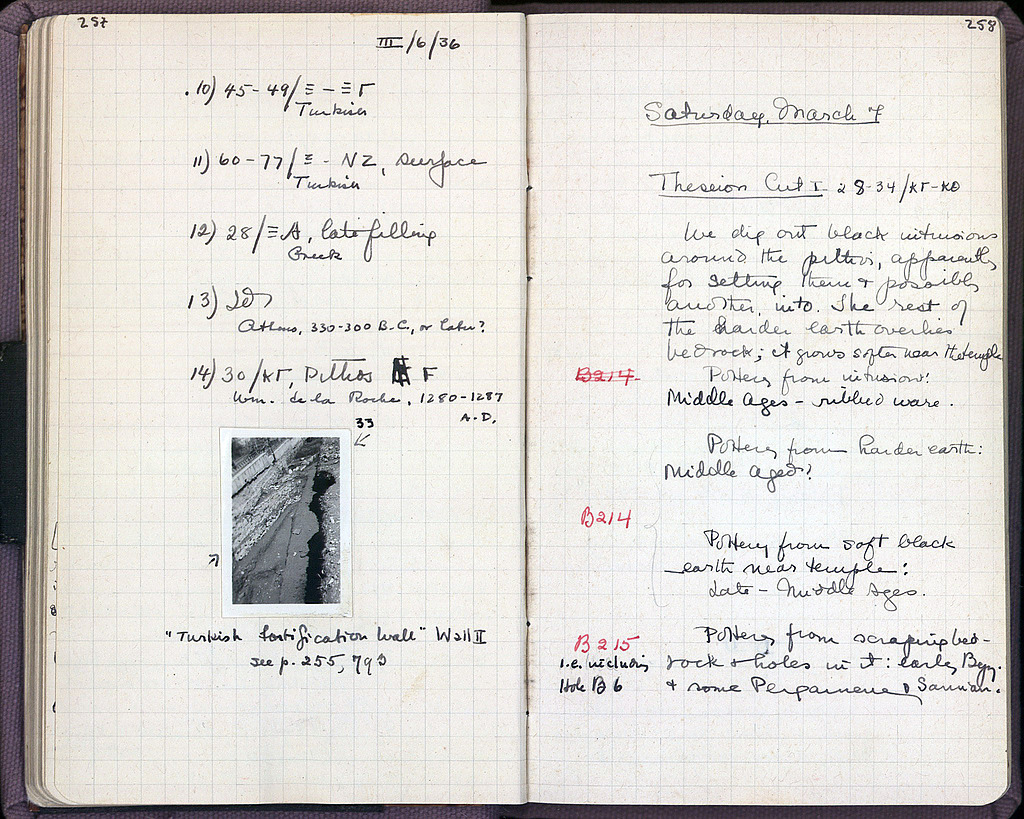 257
III/6/36
10) 45-49/Ξ-ΞΓ
Turkish
11) 60-77/Ξ - NZ, surface
Turkish
12) 28/ΞA, late filling
Greek
13)
Athens, 330-300 B.C., or later?
14) 30/ΚΓ, Pithos F
Wm. de la Roche, 1280-1287
A.D.
33
"Turkish fortification wall" Wall II
see p. 255, 79
258
Saturday, March 7
Theseion Cut I 28-34/ΚΓ-ΚΘ
We dig out black intrusions
around the pithoi, apparently
for setting them & possibly
another, into. The rest of
the harder earth overlies
bedrock; it grows softer near the temple
B214
Pottery from intrusions:
Middle Ages - ribbed ware.
Pottery from harder earth:
Middle Ages?
B214
Pottery from soft black
earth near temple:
Late - Middle Ages.
B215
Pottery from scraping bed-
i.e. including
rock & holes in it: early Byz.
Hole B 6
& some Pergamene, Samian.